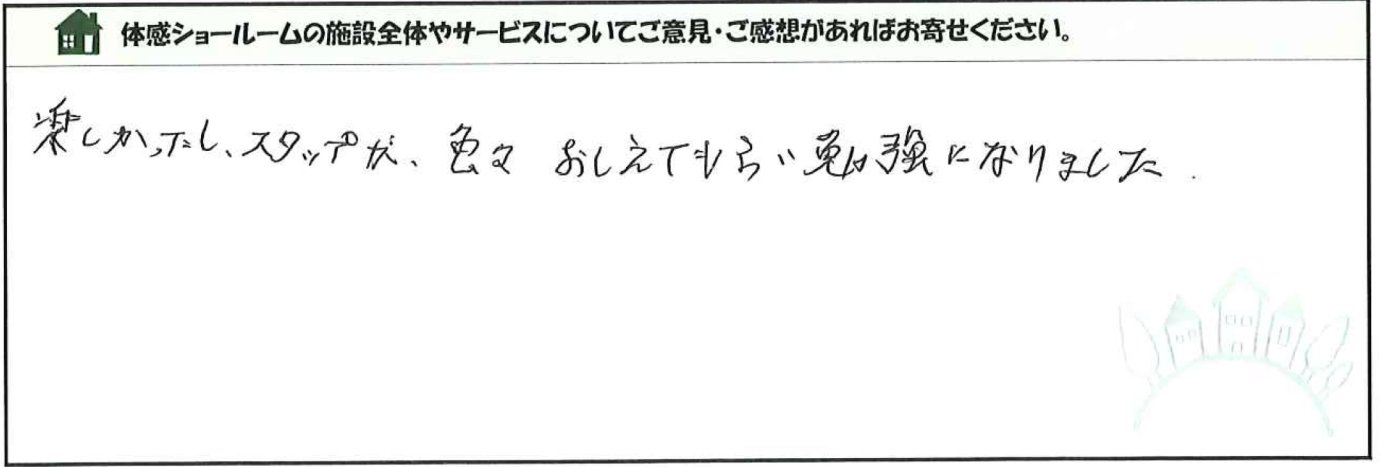 体感ショールームの施設全体やサービスについてご意見・ご感想があればお寄せください。
楽しかったし、スタップが、色々 おしえてもらい勉強になりました.